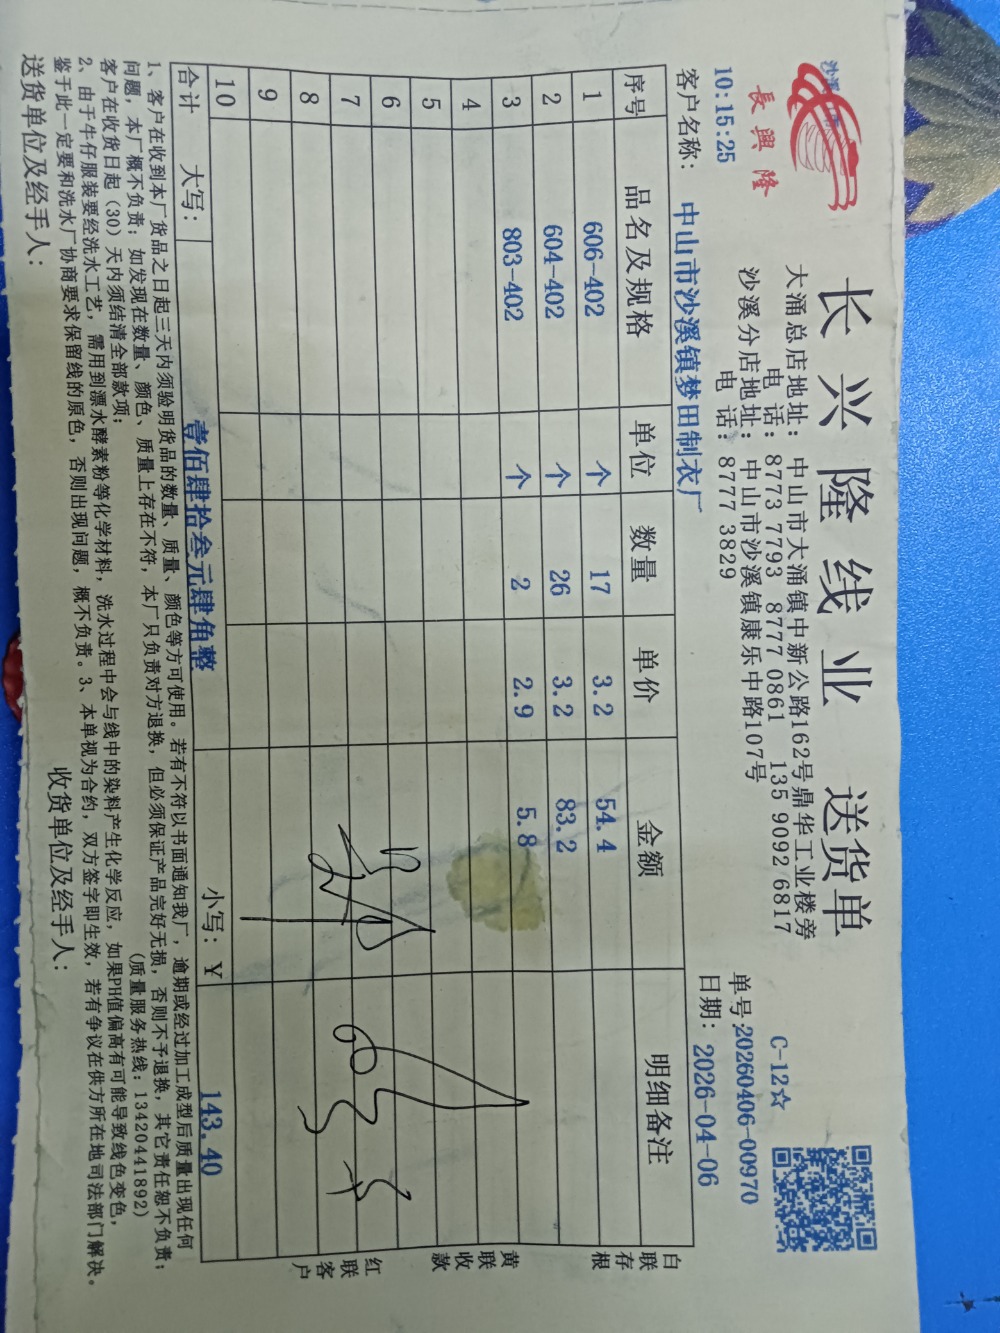 長興隆
长兴隆线业 送货单
C-12☆
大涌总店地址：中山市大涌镇中新公路162号鼎华工业楼旁
电 话：8773 7793 8777 0861 135 9092 6817
沙溪分店地址：中山市沙溪镇康乐中路107号
电 话：8777 3829
单号:20260406-00970
10:15:25
日期：2026-04-06
客户名称：中山市沙溪镇梦田制衣厂
序号 品名及规格 单位 数量 单价 金额 明细备注
1 606-402 个 17 3.2 54.4
2 604-402 个 26 3.2 83.2
3 803-402 个 2 2.9 5.8
4
5
6
7
8
9
10
合计 大写：壹佰肆拾叁元肆角整 小写：￥ 143.40
白联存根
黄联收款
红联客户
1、客户在收到本厂货品之日起三天内须验明货品的数量、质量、颜色等方可使用。若有不符以书面通知我厂，逾期或经过加工成型后质量出现任何
问题，本厂概不负责；如发现在数量、颜色、质量上存在不符，本厂只负责对方退换，但必须保证产品完好无损，否则不予退换，其它责任恕不负责；
客户在收货日起（30）天内须结清全部款项； (质量服务热线：13420441892)
2、由于牛仔服装要经洗水工艺，需用到漂水酵素粉等化学材料，洗水过程中会与线中的染料产生化学反应，如果PH值偏高有可能导致线色变色，
鉴于此一定要和洗水厂协商要求保留线的原色，否则出现问题，概不负责。3、本单视为合约，双方签字即生效，若有争议在供方所在地司法部门解决。
送货单位及经手人： 收货单位及经手人：